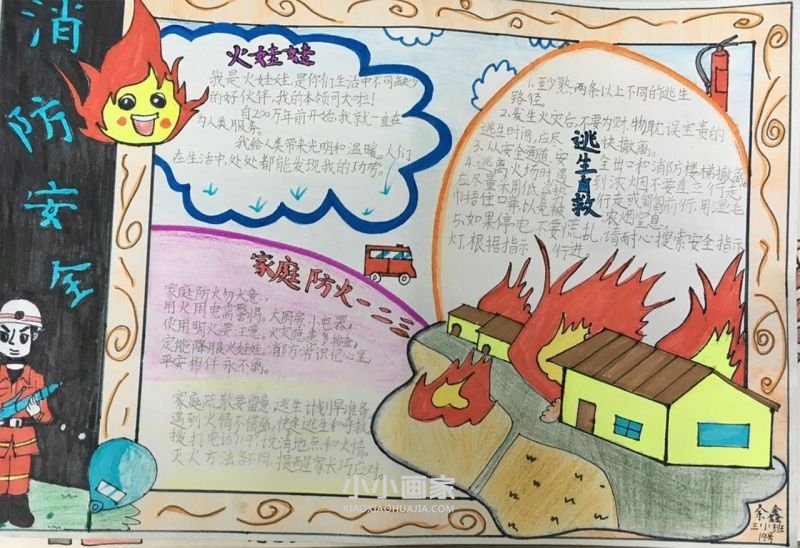 消
防
安
全
火娃娃
我是火娃娃,是你们生活中不可缺少
的好伙伴,我的本领可大啦!
自200万年前开始,我就一直在
为人类服务。
我给人类带来光明和温暖。人们
在生活中,处处都能发现我的功劳。
逃生自救
1.至少熟 两条以上不同的逃生
路径。
2.发生火灾后,不要为财物耽误宝贵的
逃生时间,应尽快撤离。
3.从安全通道、安全出口和消防楼梯撤离。
4.逃离火场时遇到浓烟不要直立行走,
应尽量采用低姿势行走或匍匐前行,用湿毛
巾捂住口鼻,以免被浓烟窒息。
5.如果停电,不要慌乱,请耐心搜索安全指示
灯,根据指示行进。
家庭防火一二三
家庭防火勿大意,
用火用电需警惕。大厨房,小电器,
使用明火要注意。火灾隐患多排查,
定能降服火娃娃。消防常识记心里,
平安相伴永不离。
家庭疏散要留意,逃生计划早准备
遇到火情不慌张,快速逃生和呼救
拨打电话119,说清地点和火情。
灭火方法各不同,提醒家长巧应对
小小画家
XIAOXIAOHUAJIA.COM
余鑫
三(1)班
19号